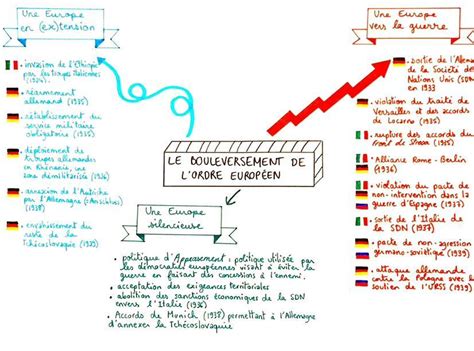 Une Europe
en (ex)tension
• invasion de l'Ethiopie
par les troupes italiennes
• réarmement
allemand (1935)
• rétablissement du
service militaire
obligatoire (1935)
• déploiement de
troupes allemandes
en Rhénanie, une
zone démilitarisée (1936)
• annexion de l'Autriche
par l'Allemagne (Anschluss)
(1938)
• envahissement du
reste de la
Tchécoslovaquie (1939)
LE BOULEVERSEMENT DE
L'ORDRE EUROPÉEN
Une Europe
silencieuse
• politique d'Appeasement : politique utilisée par
les démocraties européennes visant à éviter la
guerre en faisant des concessions à l'ennemi.
• acceptation des exigences territoriales
• abolition des sanctions économiques de la SDN
envers l'Italie (1936)
• Accords de Munich (1938) permettant à l'Allemagne
d'annexer la Tchécoslovaquie
Une Europe
vers la guerre
• sortie de l'Allem
de la Société des
Nations Unies (SDN
en 1933
• violation du traité de
Versailles et des accords
de Locarno (1935)
• rupture des accords du
front de Stresa (1935)
• Alliance Rome - Berlin
(1936)
• violation du pacte de
non-intervention dans la
guerre d'Espagne (1937)
• sortie de l'Italie de
la SDN (1937)
• pacte de non-agression
germano-soviétique (1939)
• attaque allemande
contre la Pologne avec le
soutien de l'URSS (1939)